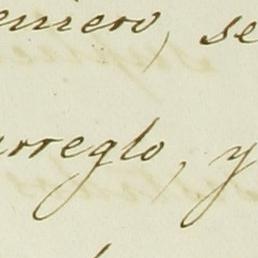 emiero, se
arreglo, y